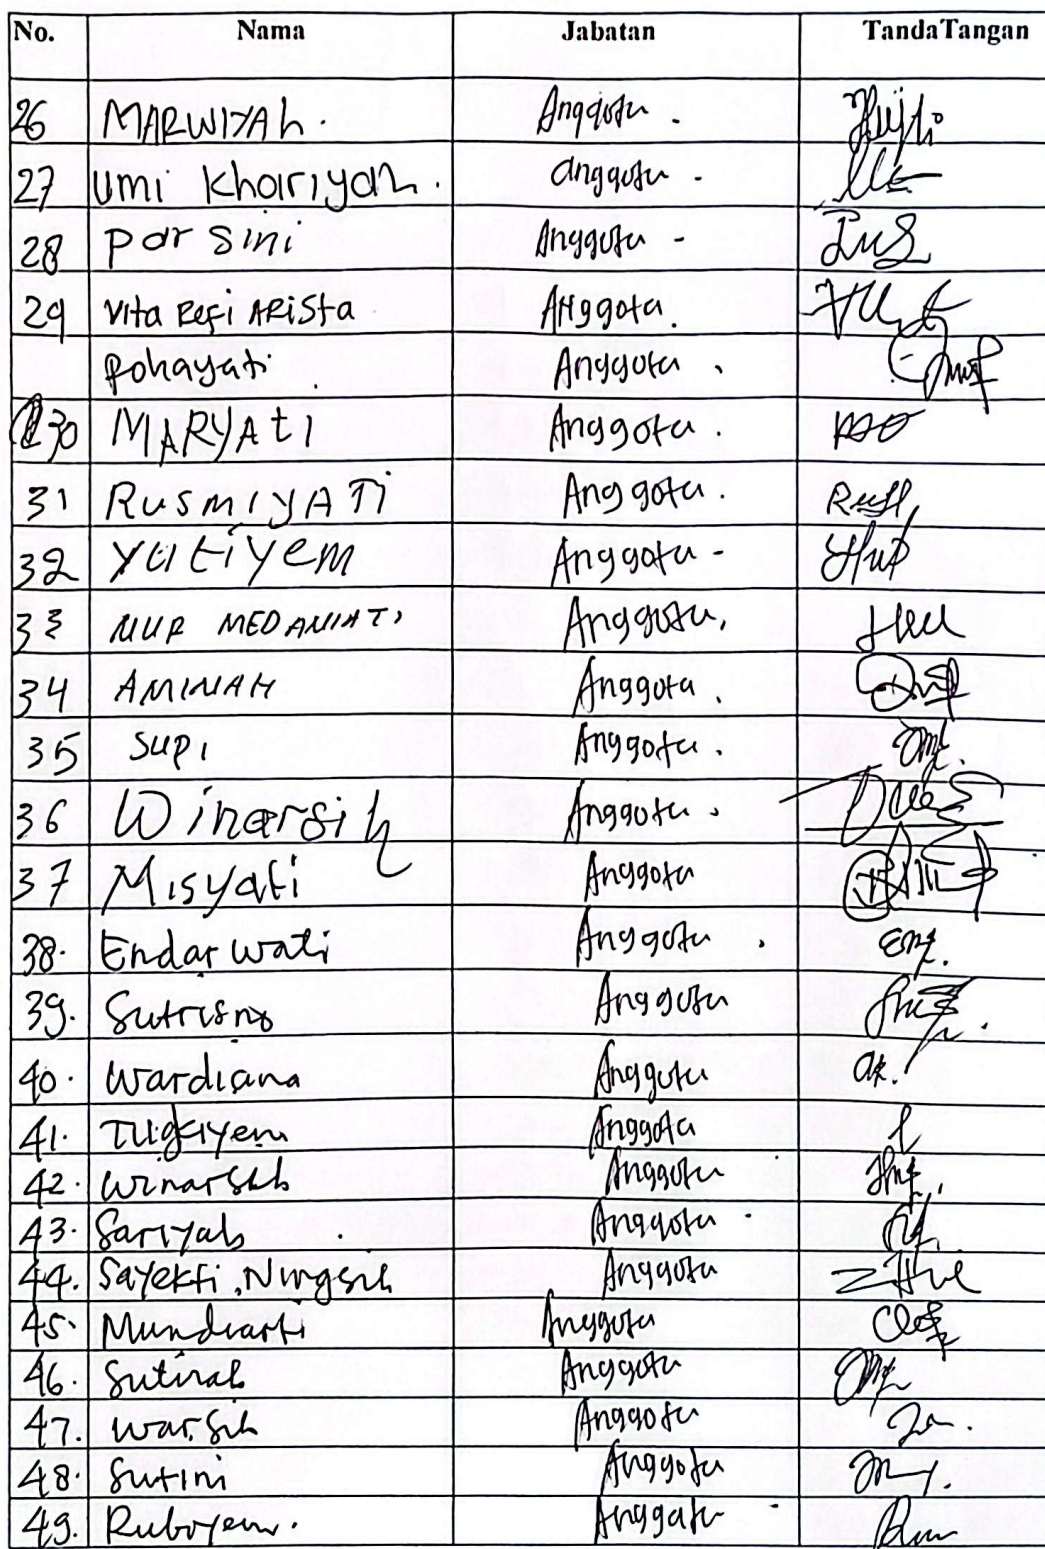 No. Nama Jabatan TandaTangan
26 MARWIYAh. Anggota.
27 umi khoiriyah. anggota.
28 par sini Anggota -
29 Vita Refi ARista Anggota.
Rohayati Anggota.
30 MARYAti Anggota.
31 RusmiyATi Anggota.
32 Yutiyem Anggota -
33 NUR MEDANIATI Anggota.
34 AMINAH Anggota.
35 Supi Anggota.
36 Winarsih Anggota.
37 Misyati Anggota
38. Endarwati Anggota.
39. Sutrisno Anggota
40. Wardiana Anggota
41. Anggota
42. Winarsih Anggota
43. Sariyah Anggota
44. Sayekti Ningsih Anggota
45. Mundiarti Anggota
46. Sutirah Anggota
47. Warsih Anggota
48. Sutini Anggota
49. Ruboyem. Anggota